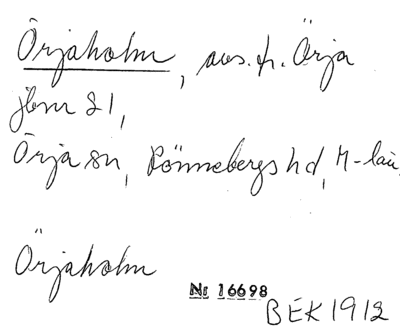 Örjaholm, avs. fr. Örja
jbnr 21,
Örja sn, Rönnebergs hd, M-län.
Örjaholm
Nr 16698
BEK 1912